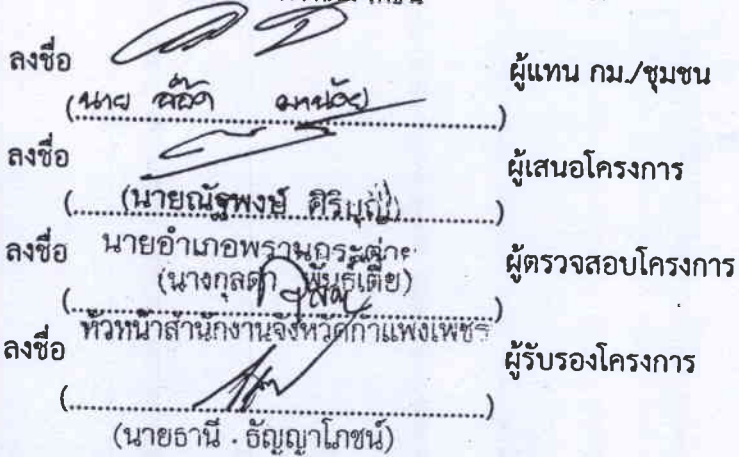 ลงชื่อ ผู้แทน กม./ชุมชน
(นาย)
ลงชื่อ ผู้เสนอโครงการ
(นายณัฐพงษ์ ศิริบุญ)
นายอำเภอพรานกระต่าย
ลงชื่อ ผู้ตรวจสอบโครงการ
(นางกุลดา พันธ์เตี้ย)
หัวหน้าสำนักงานจังหวัดกำแพงเพชร
ลงชื่อ ผู้รับรองโครงการ
(นายธานี ธัญญาโภชน์)